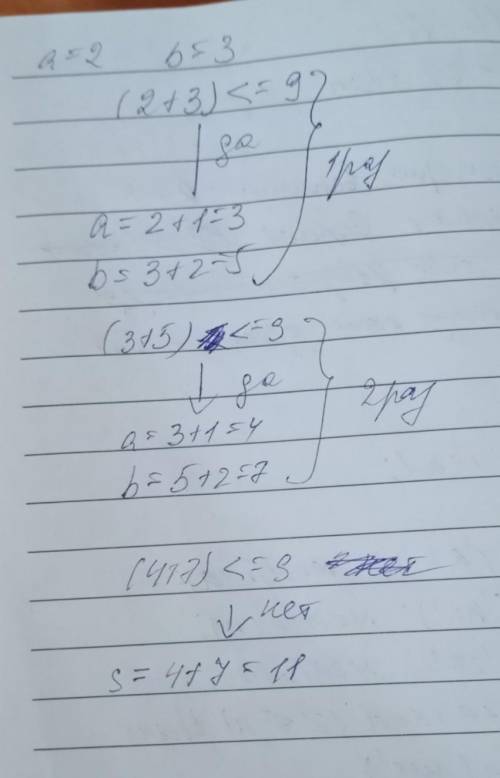 a=2 b=3
(2+3)<=9
да
1 раз
a=2+1=3
b=3+2=5
(3+5) <=9
да
2 раз
a=3+1=4
b=5+2=7
(4+7)<=9
нет
s=4+7=11